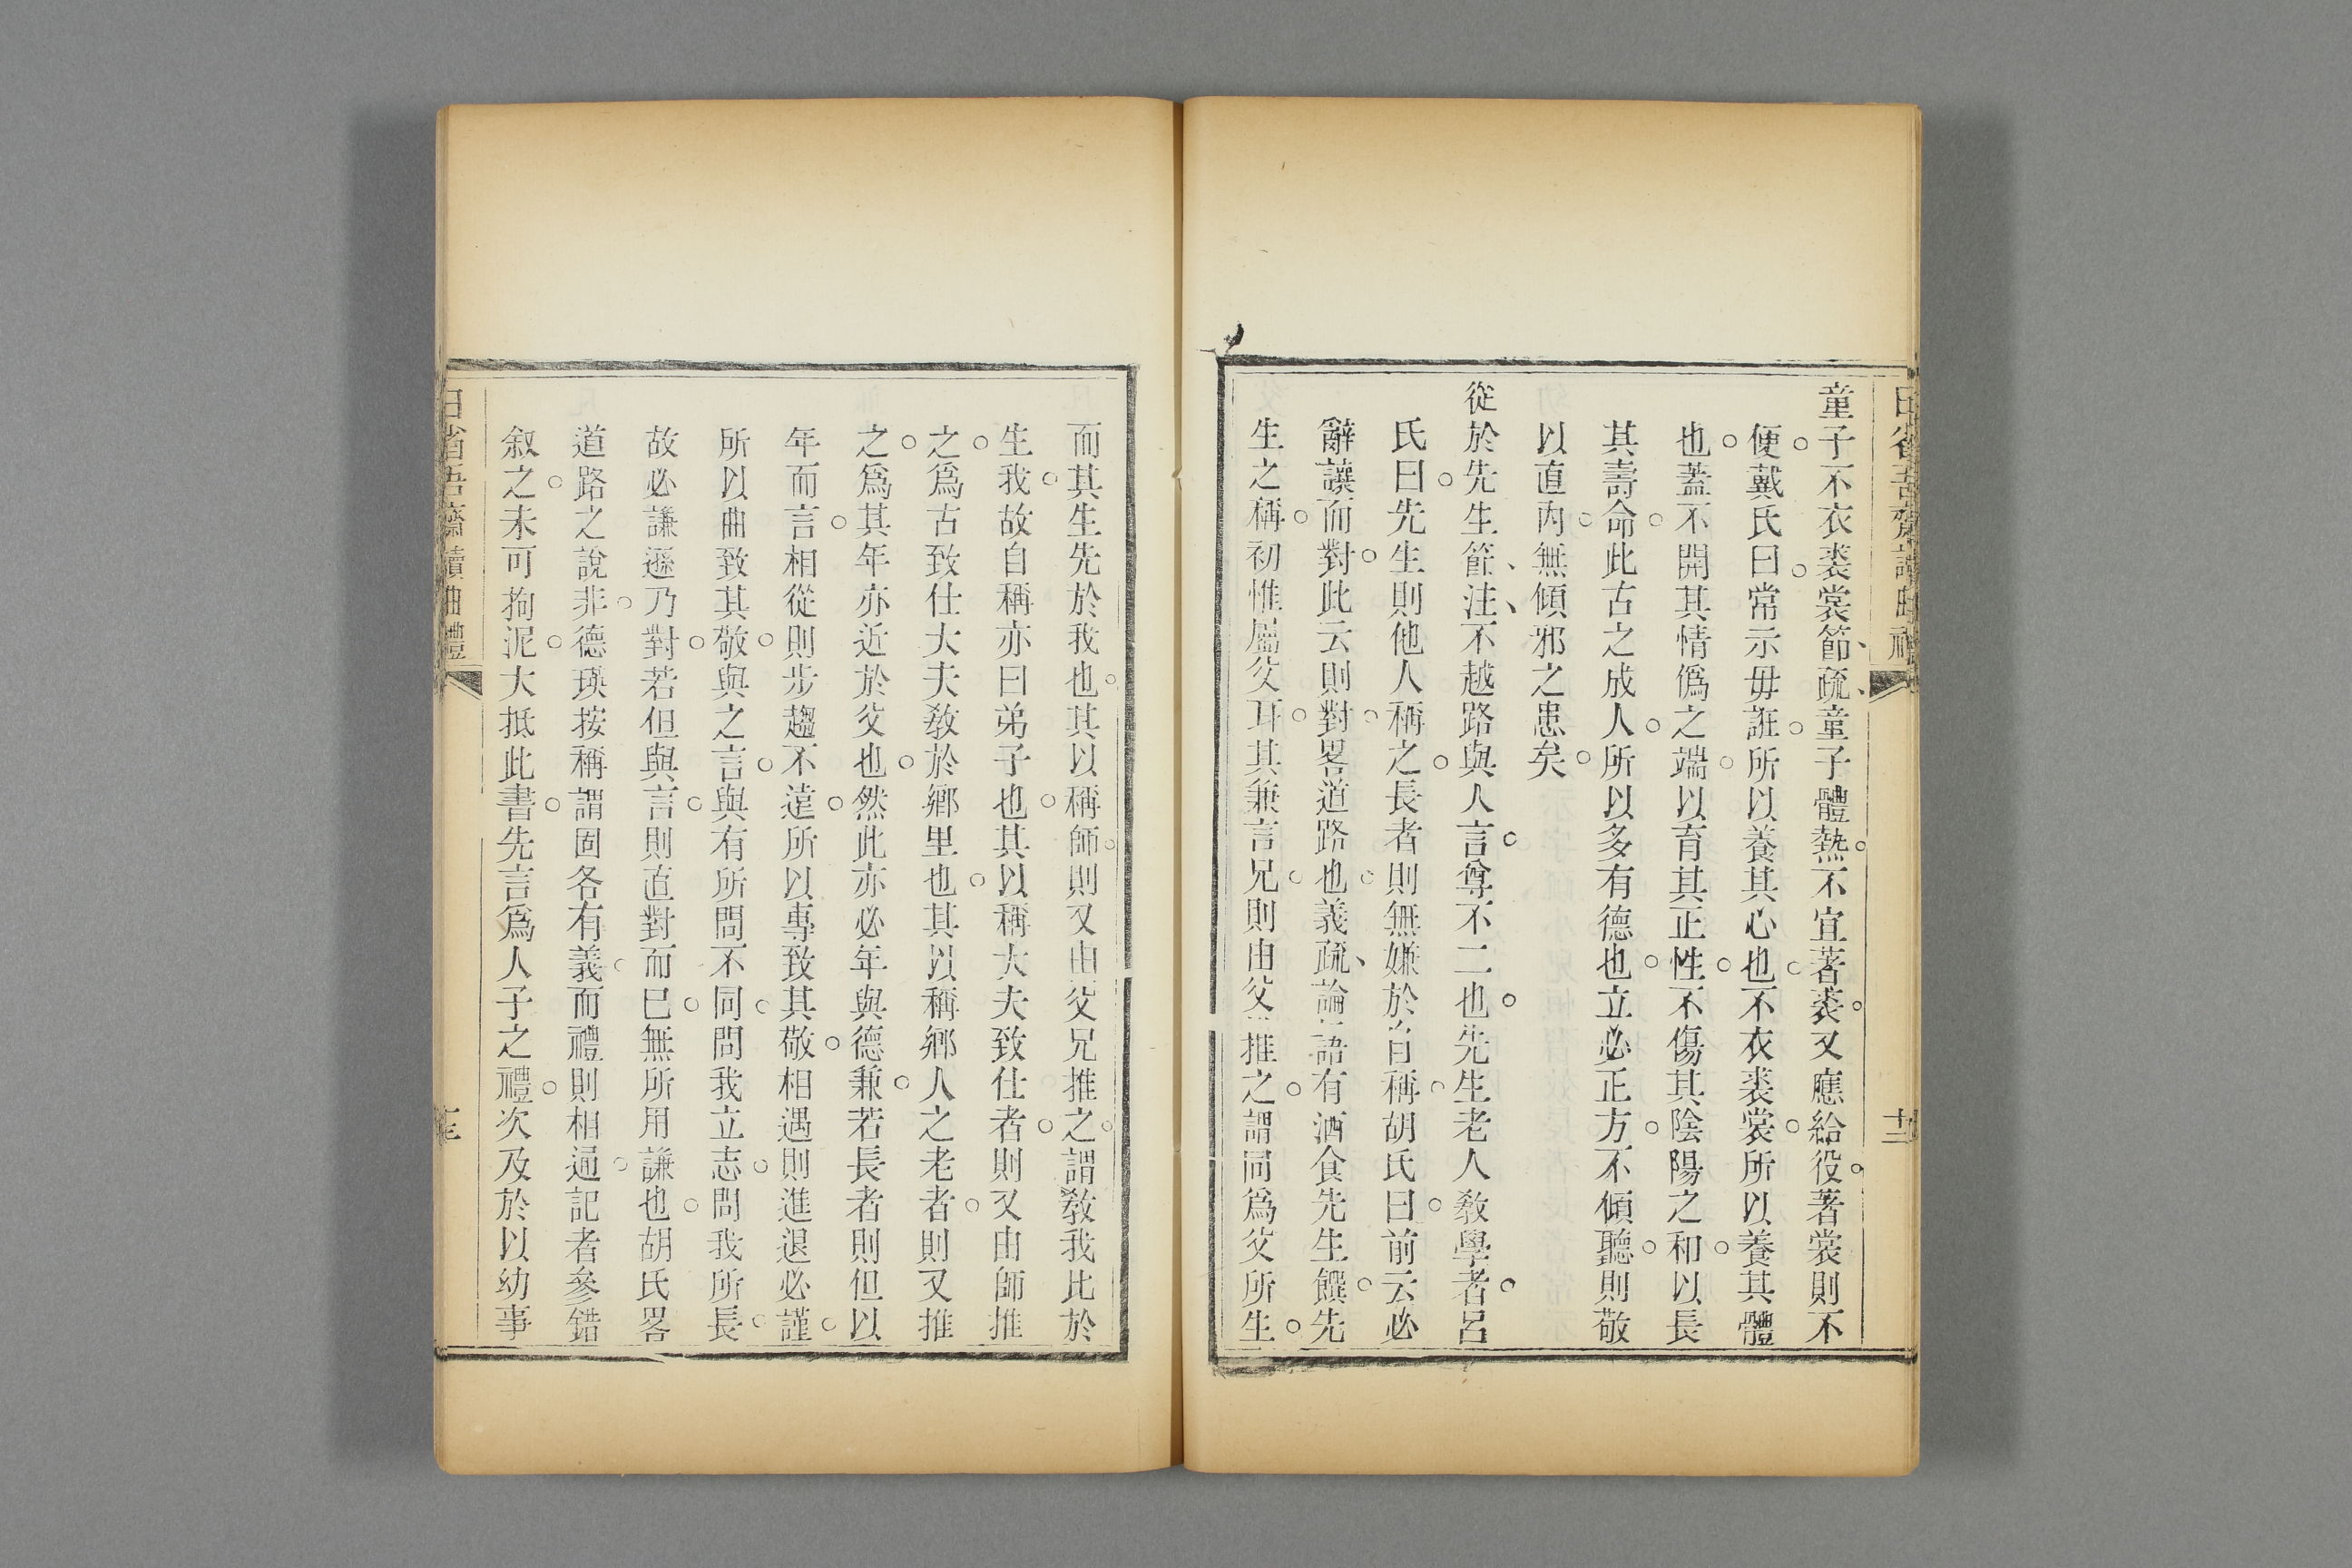 童子不衣裘裳節疏、童子體熱。不宜著裘。又應給役。著裳則不
便。戴氏曰。常示毋誑。所以養其心也。不衣裘裳。所以養其體
也。蓋不開其情僞之端。以育其正性。不傷其陰陽之和。以長
其壽命。此古之成人。所以多有德也。立必正方。不傾聽。則敬
以直內。無傾邪之患矣。
從於先生節注、不越路與人言。尊不二也。先生老人敎學者。呂
氏曰。先生則他人稱之。長者則無嫌於自稱。胡氏曰。前云必
辭讓而對。此云則對。畧道路也。義疏、論語有酒食先生饌。先
生之稱。初惟屬父耳。其兼言兄。則由父推之。謂同爲父所生。
而其生先於我也。其以稱師。則又由父兄推之。謂敎我比於
生我。故自稱亦曰弟子也。其以稱大夫致仕者。則又由師推
之。爲古致仕大夫敎於鄉里也。其以稱鄉人之老者。則又推
之。爲其年亦近於父也。然此亦必年與德兼。若長者則但以
年而言。相從則步趨不遠。所以專致其敬。相遇則進退必謹。
所以曲致其敬。與之言。與有所問不同。問我立志。問我所長。
故必謙遜乃對。若但與言。則直對而已。無所用謙也。胡氏畧
道路之說非。德瑛按稱謂固各有義。而禮則相通。記者參錯
叙之。未可拘泥。大抵此書。先言爲人子之禮。次及於以幼事
日省吾齋讀曲禮